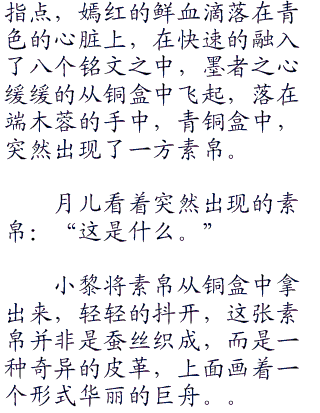 指点，嫣红的鲜血滴落在青
色的心脏上，在快速的融入
了八个铭文之中，墨者之心
缓缓的从铜盒中飞起，落在
端木蓉的手中，青铜盒中，
突然出现了一方素帛。
月儿看着突然出现的素
帛：“这是什么。”
小黎将素帛从铜盒中拿
出来，轻轻的抖开，这张素
帛并非是蚕丝织成，而是一
种奇异的皮革，上面画着一
个形式华丽的巨舟。。